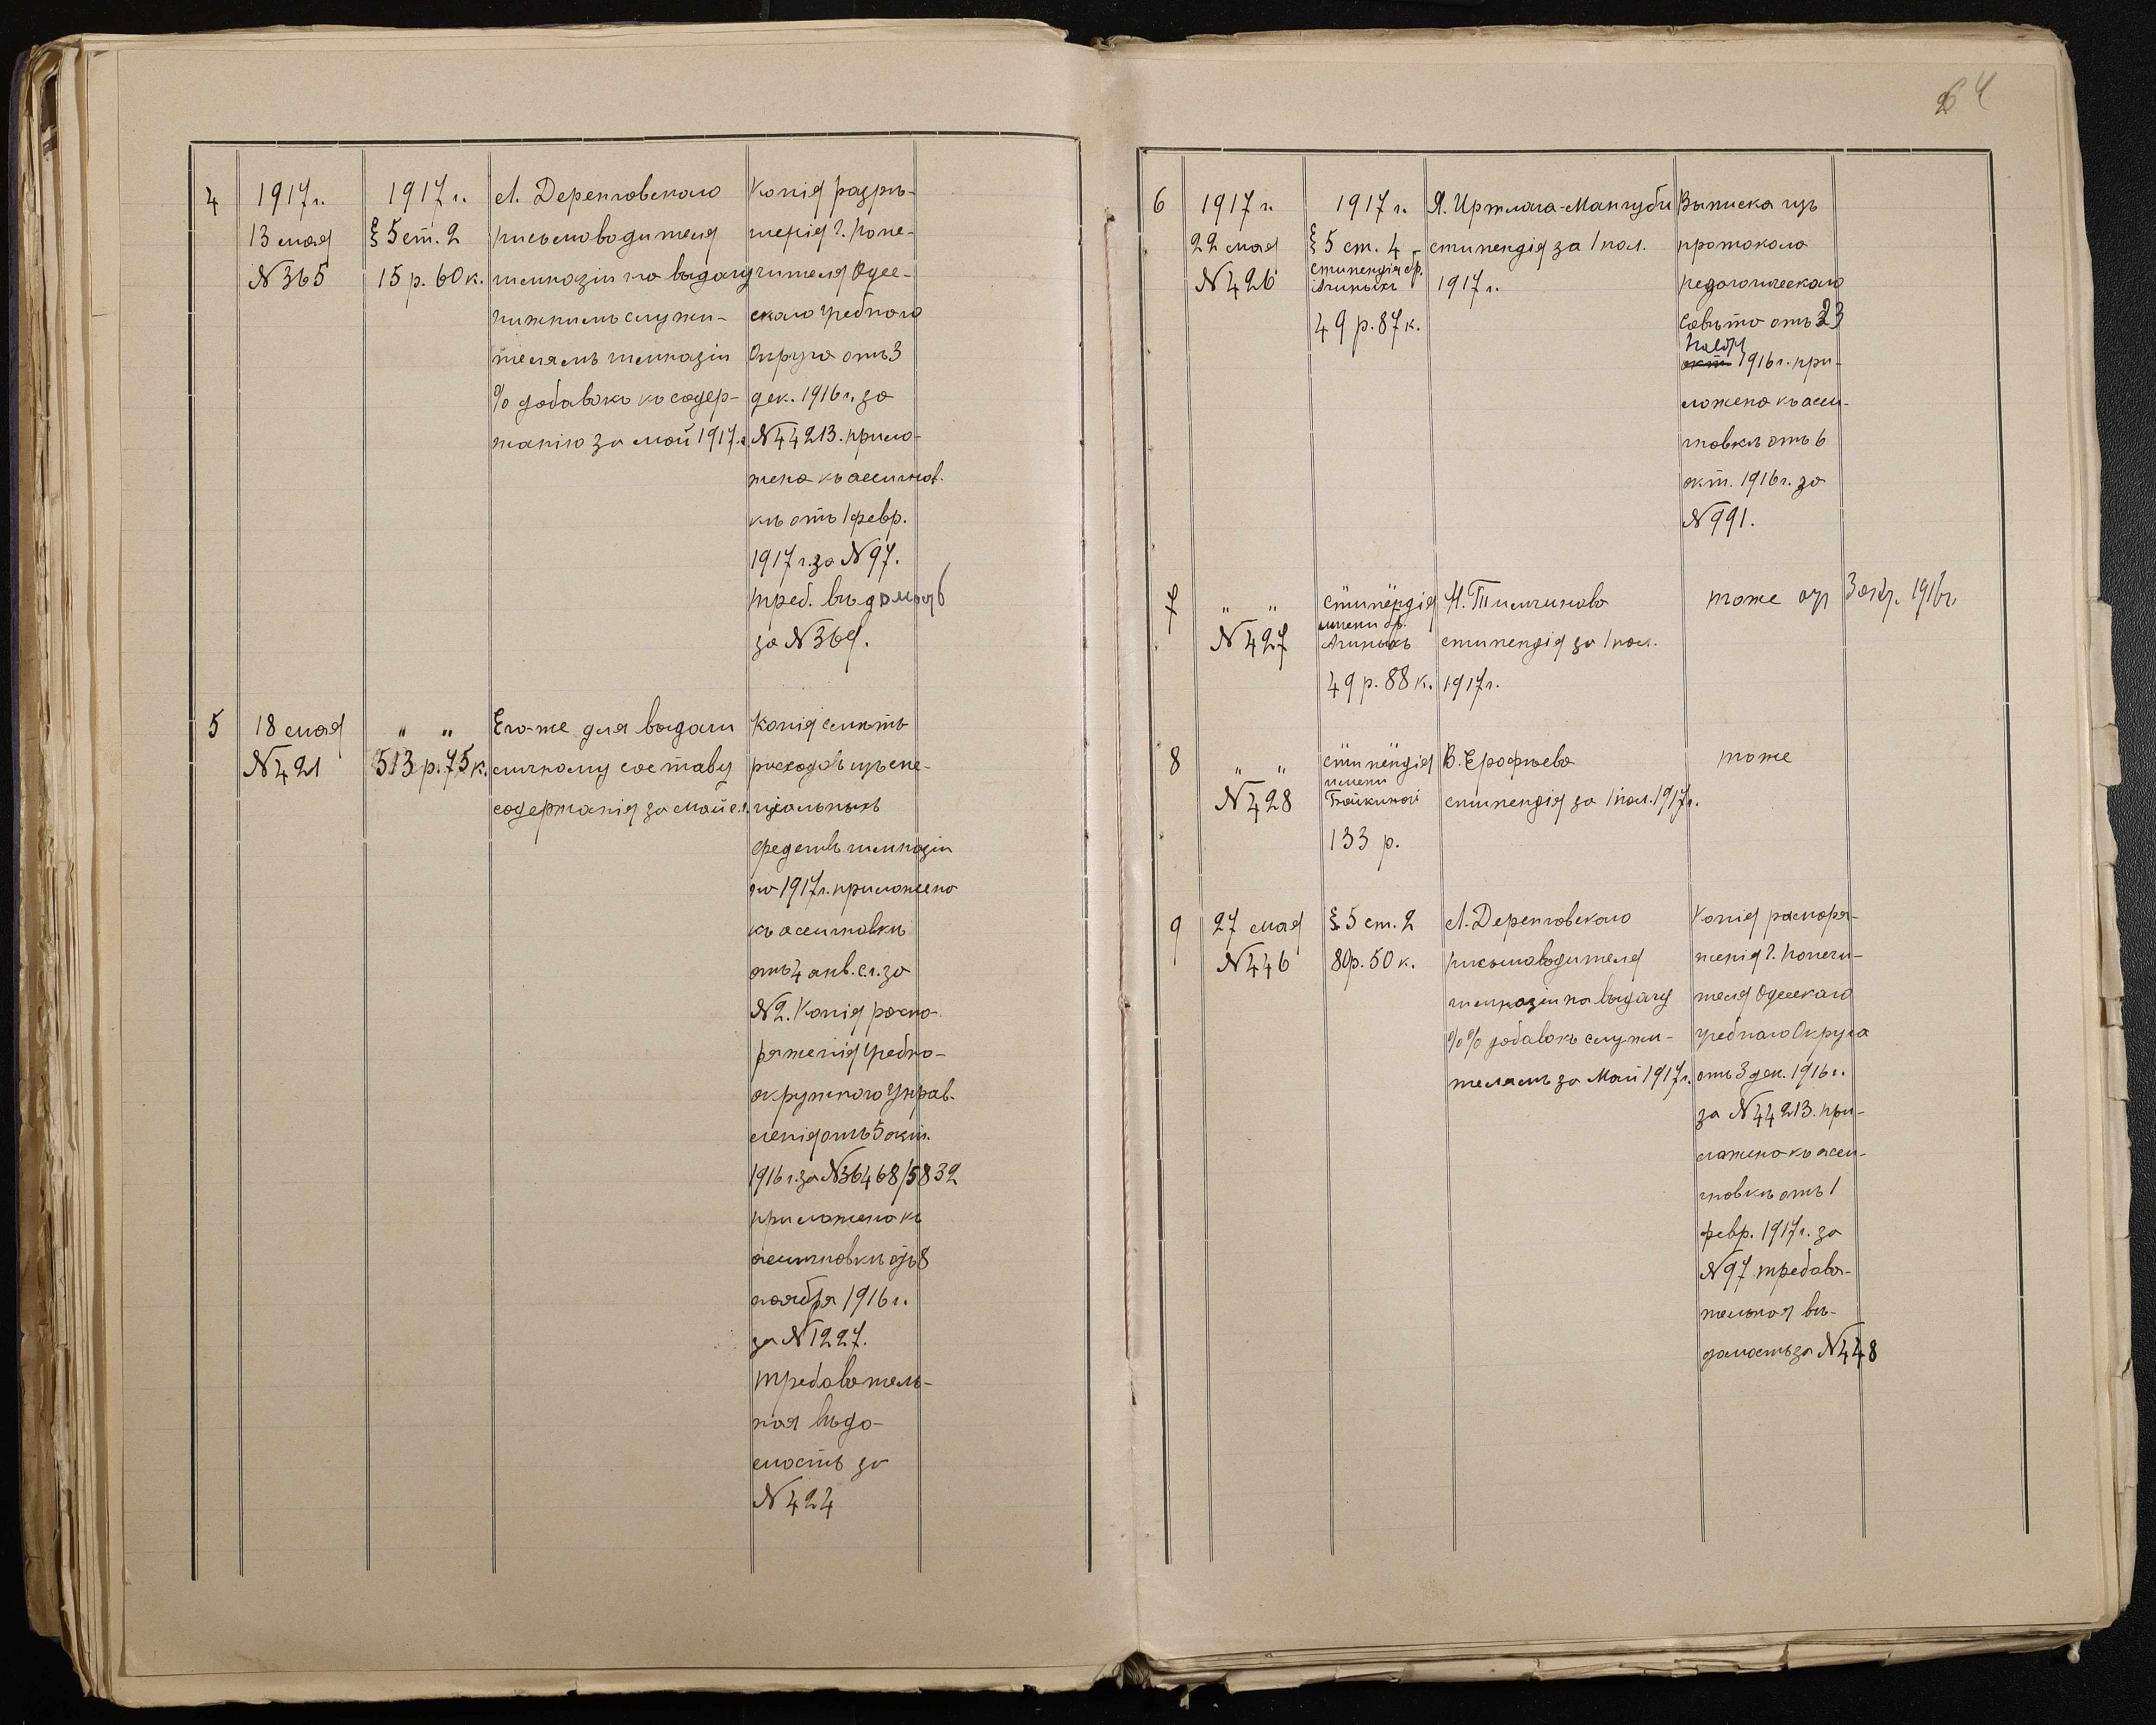 64
4
1917 г.
13 мая
N 365
1917 г.
§ 5 ст. 2
15 р. 60 к.
Л. Деренговскаго
письмоводителя
гимназіи на выдачу
нижнимъ служи-
телямъ гимназіи
% добавокъ къ содер-
жанію за май 1917 г.
Копія разрѣ-
шенія г. Попе-
чителя Одес-
скаго Учебного
Округа отъ 3
дек. 1916 г. за
N 44213. прило-
жена къ ассигнов.
кѣ отъ 1 февр.
1917 г. за N 97.
треб. вѣдомость
за N 369.
5
18 мая
N 421
" "
513 р. 75 к.
Его-же для выдачи
личному составу
содержанія за май с.г.
Копія смѣты
расходовъ изъ спе-
ціальныхъ
средствъ гимназіи
на 1917 г. приложена
къ ассигновкѣ
отъ 4 янв. с.г. за
N 2. Копія распо-
ряженія Учебно-
окружного Управ-
ленія отъ 5 окт.
1916 г. за N 36468/5832
приложена къ
ассигновкѣ отъ 8
ноября 1916 г.
за N 1227.
требователь-
ная вѣдо-
мость за
N 424
6
1917 г.
22 мая
N 426
1917 г.
§ 5 ст. 4 -
стипендія бр.
49 р. 87 к.
Я. Иртлача-Мангуби
стипендія за 1 пол.
1917 г.
Выписка изъ
протокола
педагогическаго
Совѣта отъ 23
Ноябр
окт 1916 г. при-
ложена къ асси-
гновкѣ отъ 6
окт. 1916 г. за
N 991.
7
" "
N 427
стипендія
имени бр.
49 р. 88 к.
Н. Тимчинова
стипендія за 1 пол.
1917 г.
тоже от 3 окт. 1916 г.
8
" "
N 428
стипендія
имени
133 р.
В. Ерофѣева
стипендія за 1 пол. 1917 г.
тоже
9
27 мая
N 446
§ 5 ст. 2
80 р. 50 к.
Л. Деренговскаго
письмоводителя
гимназіи на выдачу
%% добавокъ служи-
телямъ за Май 1917 г.
Копія распоря-
женія г. Попечи-
теля Одесскаго
Учебнаго Округа
отъ 3 дек. 1916 г.
за N 44213. при-
ложена къ асси-
гновкѣ отъ 1
февр. 1917 г. за
N 97 требова-
тельная вѣ-
домость за N 448